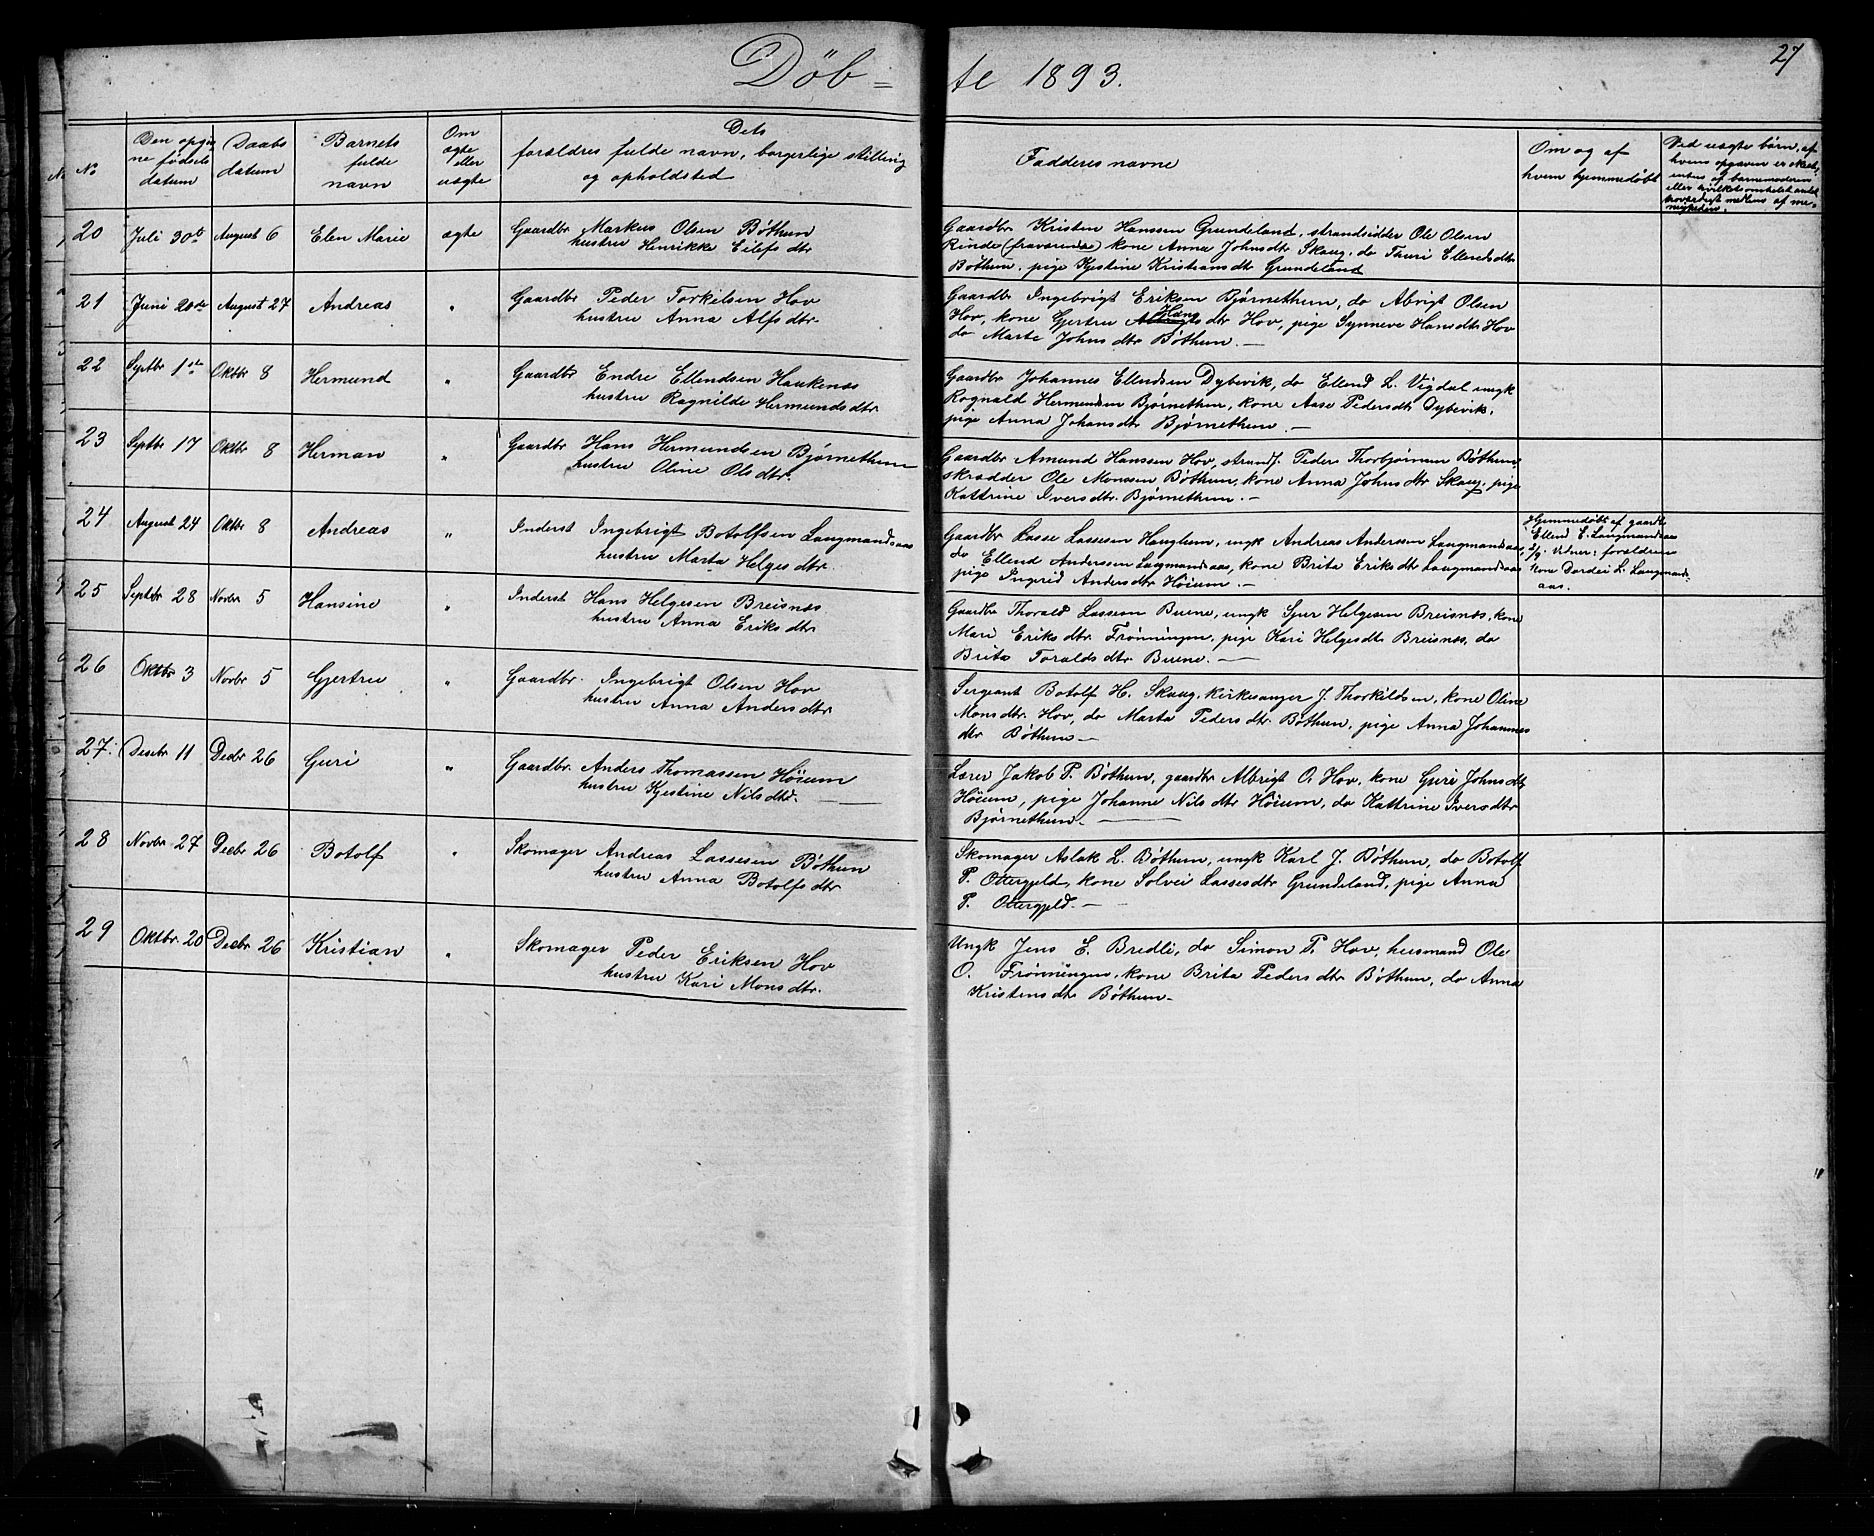 Döb = te 1893.
27
No
Den opgiv
ne fødsels
datum
Daabs
datum
Barnets
fulde
navn
Om
ægte
eller
uægte
Dets
forældres fulde navn, borgerlige stilling
og opholdsted
Faddernes navne
Om og af
hvem hjemmedøbt
Ved uægte börn, af
hvem opgaven er
af barnemoderen
eller
medlems af me-
nigheden.
20 Juli 30te August 6 Elen Marie ægte Gaardbr Markus Olsen Böthun
hustru Henrikke Eilefsdtr
Gaardbr Kristen Hanssen Grundeland, strandsidder Ole Olsen
Rinde (fraværende) kone Anna Johnsdtr Skaug, do Thuri Ellendsdtr
Böthun, pige Kjestine Kristiansdtr Grundeland
21 Juni 20de August 27 Andreas " Gaardbr Peder Torkelsen Hov
hustru Anna Alfsdtr
Gaardbr Ingebrigt Eriksen Bjørnethun, do Abrigt Olsen
Hov, kone Gjertru Hans dtr Hov, pige Synneve Hansdtr Hov
do Marte Johnsdtr Böthun. —
22 Septbr 1ste Oktbr 8 Hermund " Gaardbr Endre Ellendsen Haukenæs
hustru Ragnilde Hermundsdtr
Gaardbr Johannes Ellendsen Dybevik, do Ellend L. Vigdal ungk
Rognald Hermundsen Bjørnethun, kone Aase Pedersdtr Dybevik,
pige Anna Johansdtr Bjørnethun. —
23 Septbr 17 Oktbr 8 Herman " Gaardbr Hans Hermundsen Bjørnethun
hustru Oline Olsdtr.
Gaardbr Amund Hanssen Hov, strands. Peder Thorbjørnsen Böthun,
skrædder Ole Monssen Böthun, kone Anna Johnsdtr Skaug, pige
Kattrine Iversdtr. Bjørnethun. —
24 August 24 Oktbr 8 Andreas " Inderst Ingebrigt Botolfsen Laugmandsaas
hustru Marta Helgesdtr.
Gaardbr Lasse Lassesen Hauglum, ungk Andreas Anderssen Laugmandsaas,
do Ellend Anderssen Laugmandsaas, kone Brita Eriksdtr Laugmandsaas
pige Ingrid Andersdtr Höium. —
Hjemmedöbt af gaardbr
Ellend E. Laugmandsaas
Vidner: forældrene
kone Dordei L. Laugmands-
aas.
25 Septbr 28 Novbr 5 Hansine " Inderst Hans Helgesen Breisnæs
hustru Anna Eriksdtr
Gaardbr Thorald Lassesen Buene, ungk Sjur Helgesen Breisnæs, kone
Mari Eriksdtr Frönningen, pige Kari Helgesdtr Breisnæs, do
Brita Toraldsdtr Buene. —
26 Oktbr 3 Novbr 5 Gjertru " Gaardbr. Ingebrigt Olsen Hov
hustru Anna Andersdtr
Sergeant Botolf H. Skaug, kirkesanger J. Thorkildsen, kone Oline
Monsdtr. Hov, do Marta Pedersdtr. Böthun, pige Anna Johannes
dtr Böthun —
27. Desebr 11 Decbr 26 Guri " Gaardbr. Anders Thomassen Höium
hustru Kjestine Nilsdtr. —
Lærer Jakob P. Böthun, gaardbr Albrigt O. Hov, kone Guri Johnsdtr
Höium, pige Johanne Nilsdtr Höium, do Kattrine Iversdtr
Bjørnethun. —
28 Novbr 27 Decbr 26 Botolf " Skomager Andreas Lassesen Böthun
hustru Anna Botolfsdtr
Skomager Aslak L. Böthun, ungk Karl J. Böthun, do Botolf
P. Ottergjeld, kone Solvei Lassesdtr Grundeland, pige Anna
P. Ottergjeld. —
29 Oktbr. 20 Decbr 26 Kristian " Skomager Peder Eriksen Hov
hustru Kari Monsdtr.
Ungk Jens E. Bredli, do Simon P. Hov, husmand Ole
O. Frönningen, kone Brita Pedersdtr Böthun, do Anna
Kristensdtr Böthun —